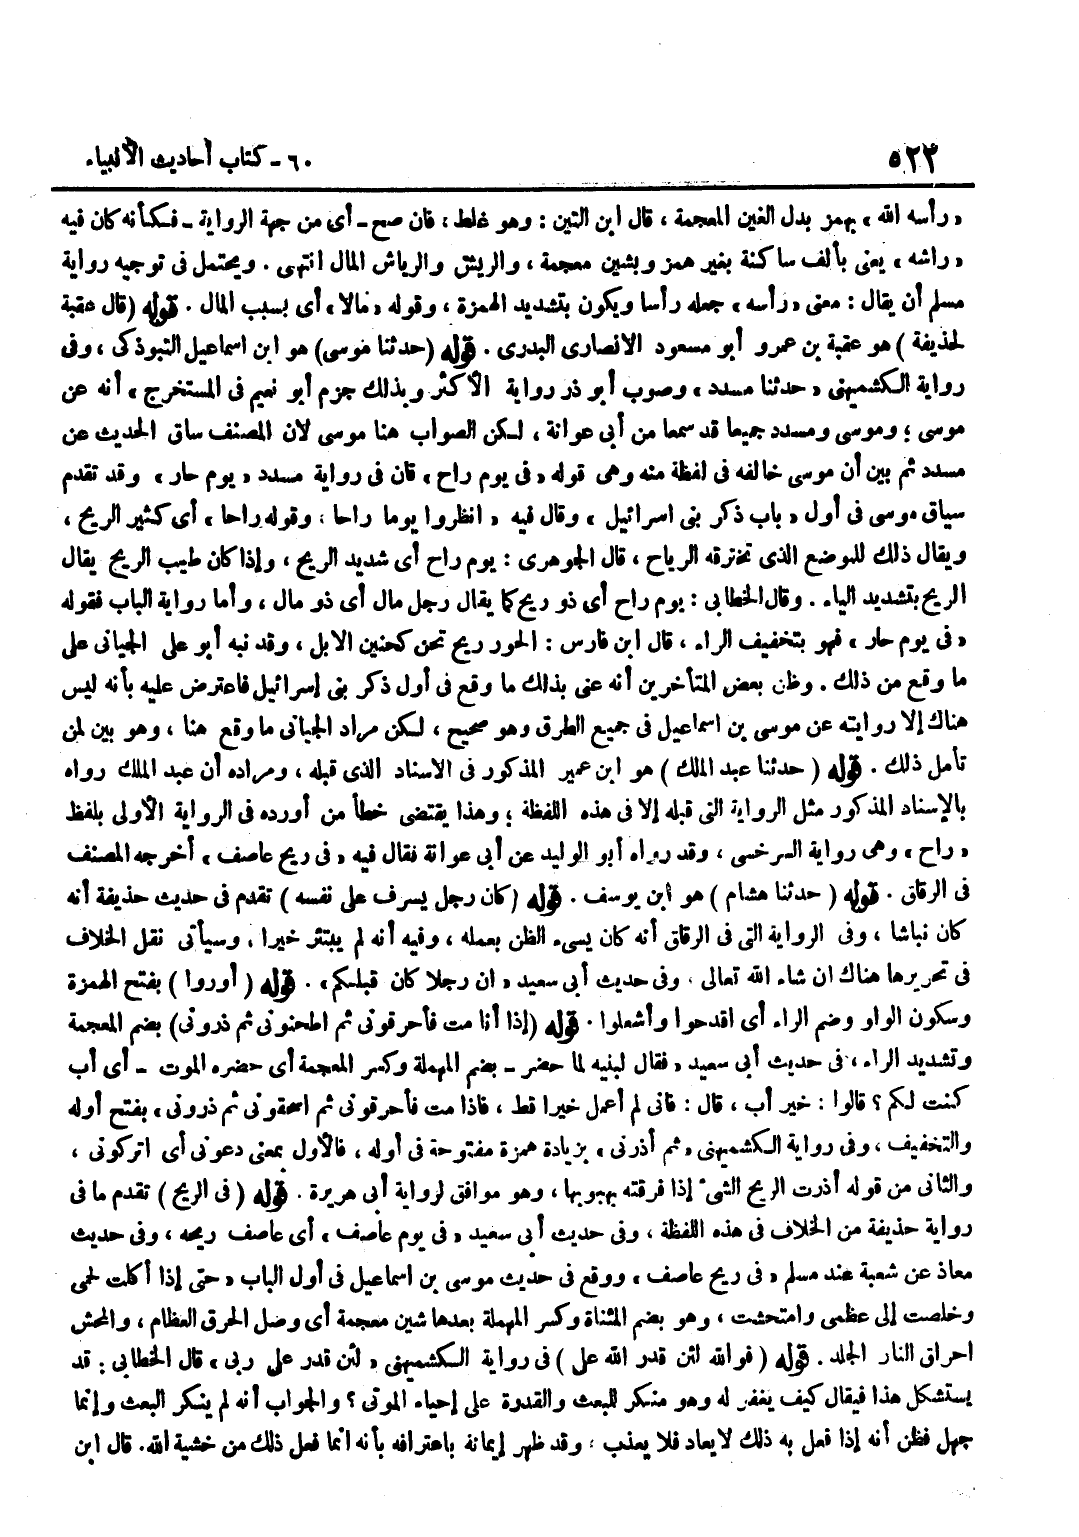 ٥٢٢ ٦٠ - كتاب أحاديث الأنبياء
« رأسه الله » بهمز بدل الغين المعجمة ، قال ابن التين : وهو غلط ، فان صح - أى من جهة الرواية - فكأنه كان فيه
« راشه » يعنى بألف ساكنة بغير همز وبشين معجمة ، والريش والرياش المال انتهى . ويحتمل فى توجيه رواية
مسلم أن يقال : معنى « رأسه » جعله رأسا ويكون بتشديد الهمزة ، وقوله « مالا » أى بسبب المال . قوله ( قال عقبة
لحذيفة ) هو عقبة بن عمرو أبو مسعود الانصارى البدرى . قوله ( حدثنا موسى ) هو ابن اسماعيل التبوذكى ، وفى
رواية الكشميهنى « حدثنا مسدد » وصوب أبو ذر رواية الأكثر وبذلك جزم أبو نعيم فى المستخرج » أنه عن
موسى ؛ وموسى ومسدد جميعا قد سمعا من أبى عوانة ، لكن الصواب هنا موسى لان المصنف ساق الحديث عن
مسدد ثم بين أن موسى خالفه فى لفظة منه وهى قوله « فى يوم راح » فان فى رواية مسدد « يوم حار » وقد تقدم
سياق موسى فى أول « باب ذكر بنى اسرائيل » وقال فيه « انظروا يوما راحا ، وقوله راحا » أى كثير الريح ،
ويقال ذلك للموضع الذى تخترقه الرياح ، قال الجوهرى : يوم راح أى شديد الريح ، وإذا كان طيب الريح يقال
الريح بتشديد الياء . وقال الخطابى : يوم راح أى ذو ريح كما يقال رجل مال أى ذو مال ، وأما رواية الباب فقوله
« فى يوم حار » فهو بتخفيف الراء ، قال ابن فارس : الحور ريح تحن كحنين الابل ، وقد نبه أبو على الجيانى على
ما وقع من ذلك . وظن بعض المتأخرين أنه عنى بذلك ما وقع فى أول ذكر بنى إسرائيل فاعترض عليه بأنه ليس
هناك إلا روايته عن موسى بن اسماعيل فى جميع الطرق وهو صحيح ، لكن مراد الجيانى ما وقع هنا ، وهو بين لمن
تأمل ذلك . قوله ( حدثنا عبد الملك ) هو ابن عمير المذكور فى الاسناد الذى قبله ، ومراده أن عبد الملك رواه
بالإسناد المذكور مثل الرواية التى قبله إلا فى هذه اللفظة ؛ وهذا يقتضى خطأ من أورده فى الرواية الأولى بلفظ
« راح » وهى رواية السرخسى ، وقد رواه أبو الوليد عن أبى عوانة نقال فيه « فى ريح عاصف » أخرجه المصنف
فى الرقاق . قوله ( حدثنا هشام ) هو ابن يوسف . قوله ( كان رجل يسرف على نفسه ) تقدم فى حديث حذيفة أنه
كان نباشا ، وفى الرواية التى فى الرقاق أنه كان يسىء الظن بعمله ، وفيه أنه لم يبتئر خيرا ، وسيأتى نقل الخلاف
فى تحريرها هناك ان شاء الله تعالى ، وفى حديث أبى سعيد « ان رجلا كان قبلكم » . قوله ( أوروا ) بفتح الهمزة
وسكون الواو وضم الراء أى اقدحوا وأشعلوا . قوله ( إذا أنا مت فأحرقونى ثم اطحنونى ثم ذرونى ) بضم المعجمة
وتشديد الراء ، فى حديث أبى سعيد « فقال لبنيه لما حضر - بضم المهملة وكسر المعجمة أى حضره الموت - أى أب
كنت لكم ؟ قالوا : خير أب ، قال : فانى لم أعمل خيرا قط ، فاذا مت فأحرقونى ثم اسحقونى ثم ذرونى » بفتح أوله
والتخفيف ، وفى رواية الكشميهنى « ثم أذرنى » بزيادة همزة مفتوحة فى أوله ، فالأول بمعنى دعونى أى اتركونى ،
والثانى من قوله أذرت الريح الشىء إذا فرقته بهبوبها ، وهو موافق لرواية أبى هريرة . قوله ( فى الريح ) تقدم ما فى
رواية حذيفة من الخلاف فى هذه اللفظة ، وفى حديث أبى سعيد « فى يوم عاصف » أى عاصف ريحه ، وفى حديث
معاذ عن شعبة عند مسلم « فى ريح عاصف » ووقع فى حديث موسى بن اسماعيل فى أول الباب « حتى إذا أكلت لحمى
وخلصت إلى عظمى وامتحشت ، وهو بضم المثناة وكسر المهملة بعدها شين معجمة أى وصل الحرق العظام ، والمحش
احراق النار الجلد . قوله ( فوالله لئن قدر الله على ) فى رواية الكشميهنى « لئن قدر على ربى » قال الخطابى : قد
يستشكل هذا فيقال كيف يغفر له وهو منكر للبعث والقدرة على إحياء الموتى ؟ والجواب أنه لم ينكر البعث وإنما
جهل فظن أنه إذا فعل به ذلك لا يعاد فلا يعذب ، وقد ظهر إيمانة باعترافه بأنه انما فعل ذلك من خشية الله. قال ابن